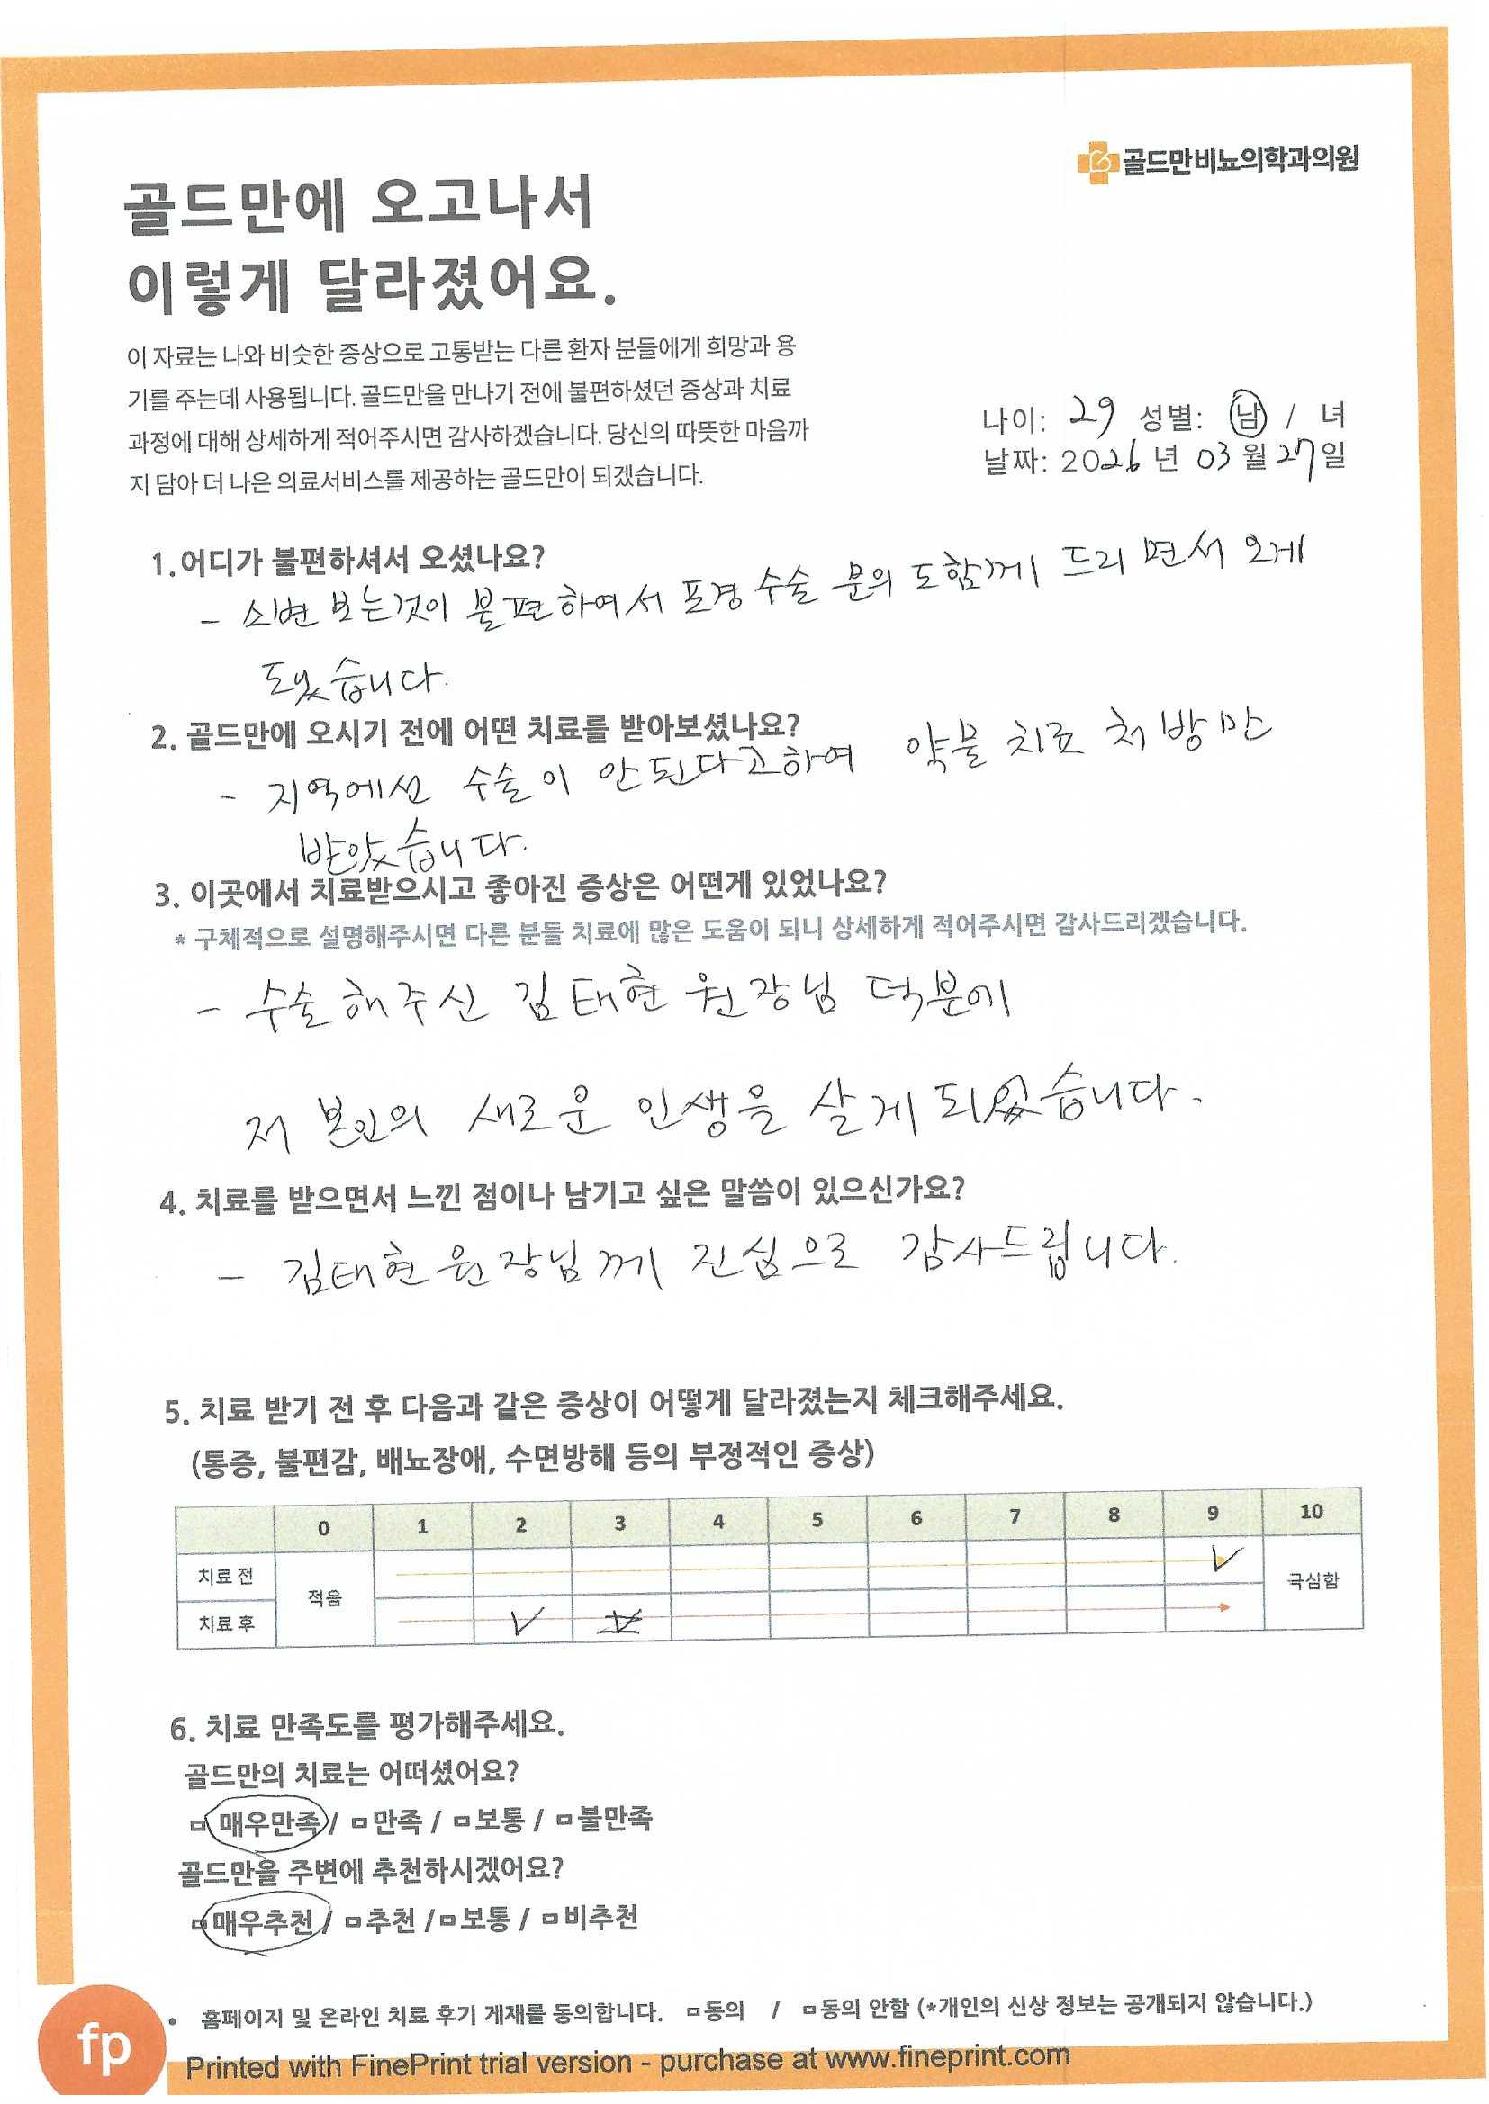 골드만비뇨의학과의원
골드만에 오고나서
이렇게 달라졌어요.
이 자료는 나와 비슷한 증상으로 고통받는 다른 환자 분들에게 희망과 용
기를 주는데 사용됩니다. 골드만을 만나기 전에 불편하셨던 증상과 치료
과정에 대해 상세하게 적어주시면 감사하겠습니다. 당신의 따뜻한 마음까
지 담아 더 나은 의료서비스를 제공하는 골드만이 되겠습니다.
나이: 29 성별: 남 / 녀
날짜: 2026년 03월 27일
1.어디가 불편하셔서 오셨나요?
- 소변 보는것이 불편하여서 포경 수술 문의 도함께 드리 면서 오게
됬습니다.
2. 골드만에 오시기 전에 어떤 치료를 받아보셨나요?
- 지역에선 수술이 안된다고하여 약물 치료 처방만
받았습니다.
3. 이곳에서 치료받으시고 좋아진 증상은 어떤게 있었나요?
* 구체적으로 설명해주시면 다른 분들 치료에 많은 도움이 되니 상세하게 적어주시면 감사드리겠습니다.
- 수술해주신 김태현 원장님 덕분에
저 본인의 새로운 인생을 살게 되었습니다.
4. 치료를 받으면서 느낀 점이나 남기고 싶은 말씀이 있으신가요?
- 김태현원장님께 진심으로 감사드립니다.
5. 치료 받기 전 후 다음과 같은 증상이 어떻게 달라졌는지 체크해주세요.
(통증, 불편감, 배뇨장애, 수면방해 등의 부정적인 증상)
0 1 2 3 4 5 6 7 8 9 10
치료 전 ✓
적음 극심함
치료 후 ✓
6. 치료 만족도를 평가해주세요.
골드만의 치료는 어떠셨어요?
□ 매우만족 / □ 만족 / □ 보통 / □ 불만족
골드만을 주변에 추천하시겠어요?
□ 매우추천 / □ 추천 / □ 보통 / □ 비추천
• 홈페이지 및 온라인 치료 후기 게재를 동의합니다. □ 동의 / □ 동의 안함 (*개인의 신상 정보는 공개되지 않습니다.)
fp
Printed with FinePrint trial version - purchase at www.fineprint.com